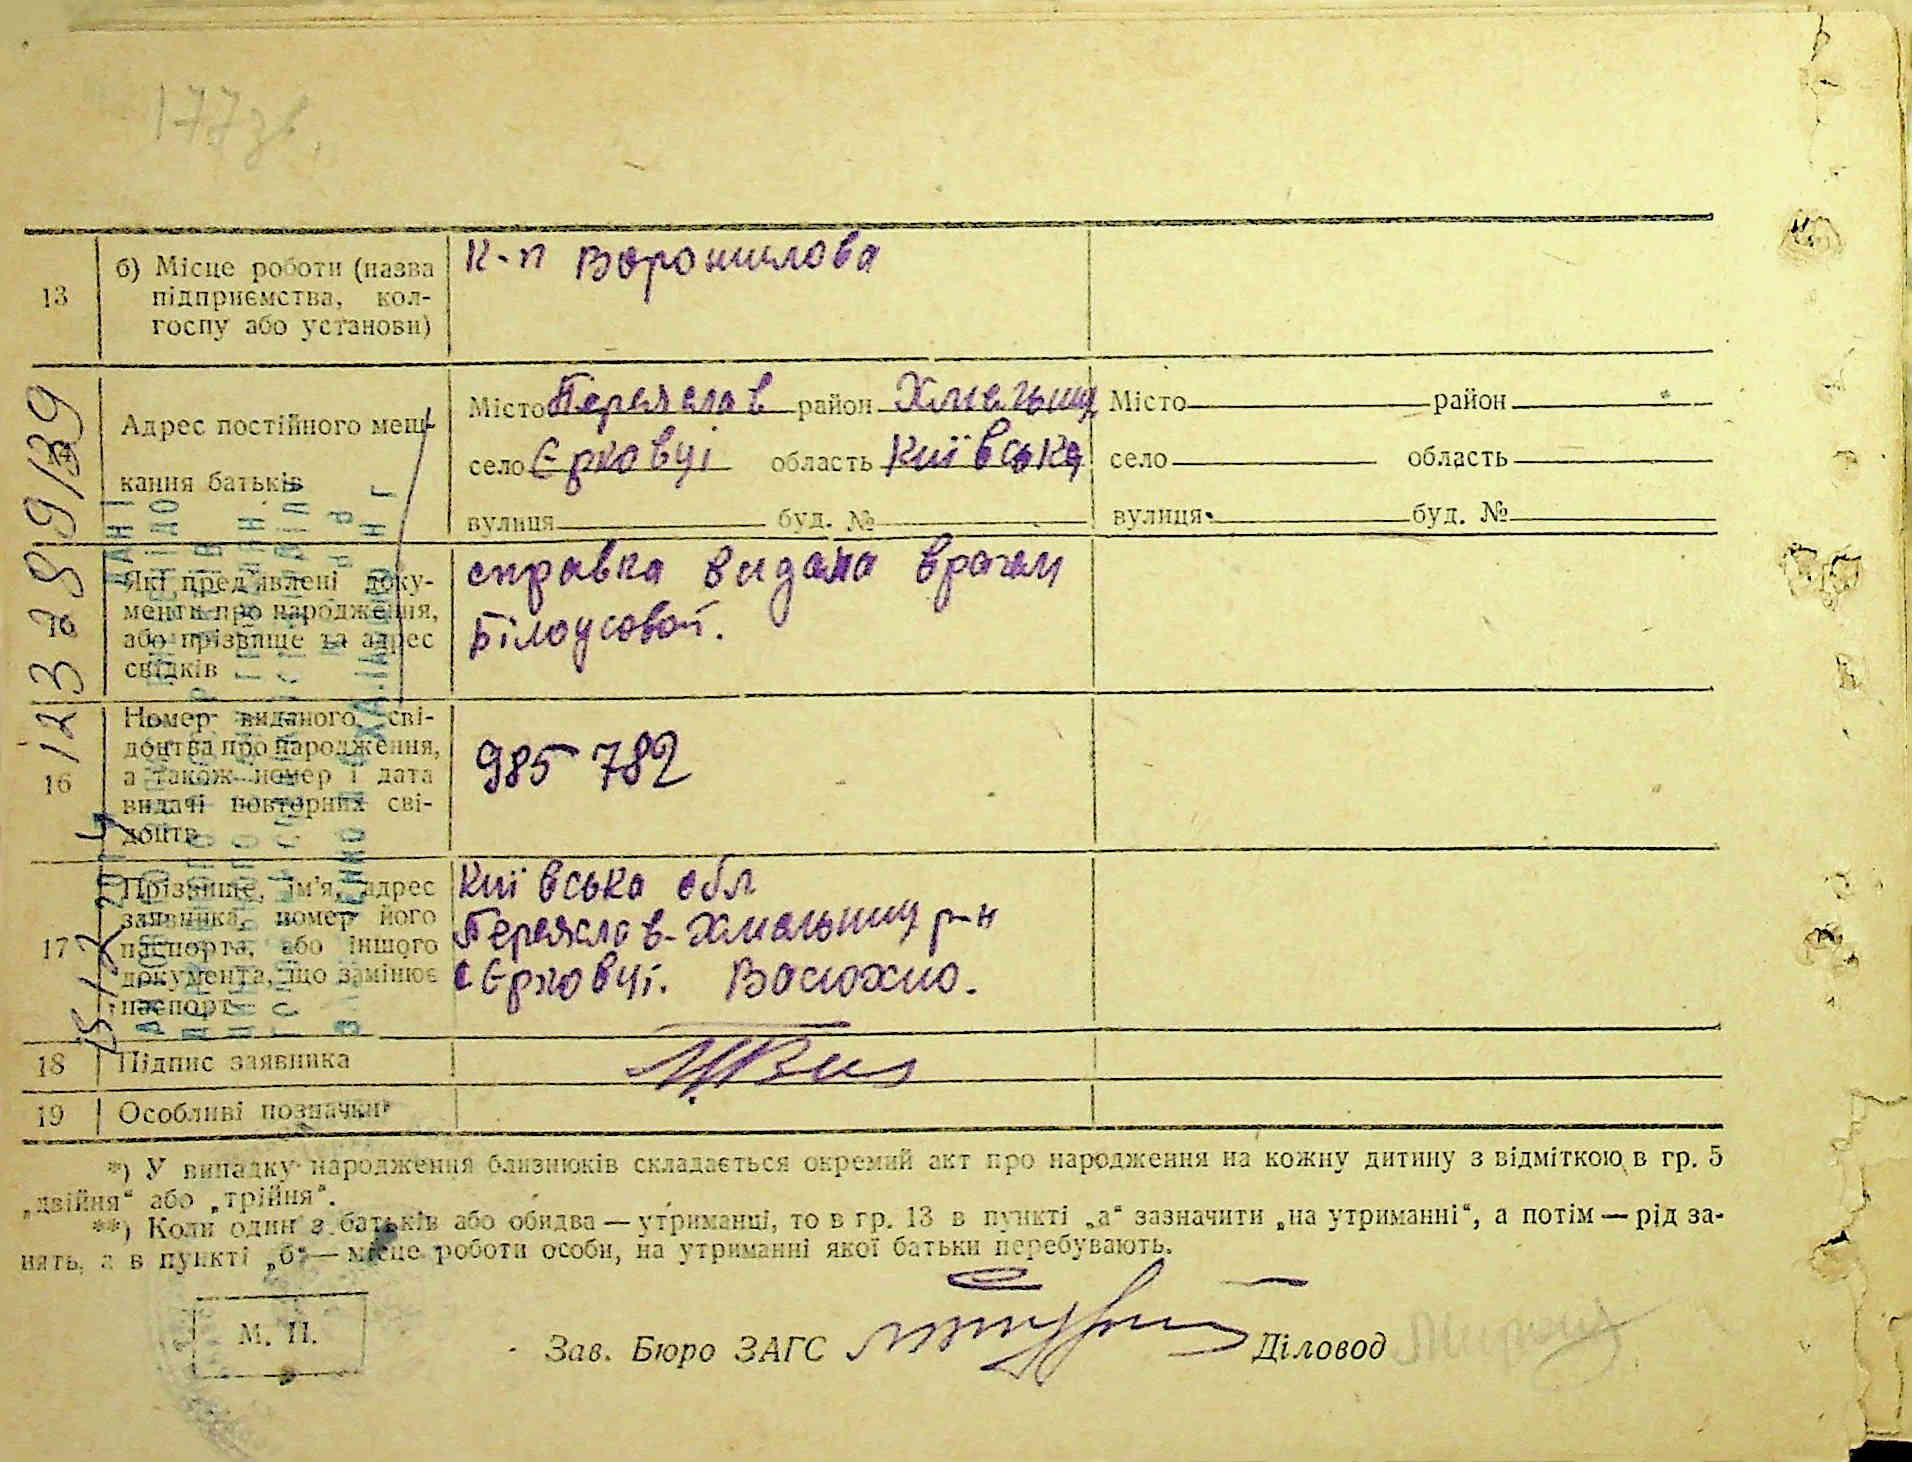 177зв.
13
б) Місце роботи (назва
підприємства, кол-
госпу або установи)
К-п Ворошилова
Адрес постійного меш-
кання батьків
Місто Переяслав район Хмельниц
село Єрковці область Київська
вулиця буд. №
Місто район
село область
вулиця буд. №
Які пред'явлені доку-
менти про народження,
або прізвище та адрес
свідків
справка видана врачем
Білоусовой.
16
Номер виданого сві-
доцтва про народження,
а також номер і дата
видачі повторних сві-
доцтв
985 782
17
Прізвище, ім'я, адрес
заявника, номер його
паспорта, або іншого
документа, що замінює
паспорт
Київська обл
Переяслав-Хмельниц р-н
с Єрковці. Васюхно.
18
Підпис заявника
19
Особливі позначки
*) У випадку народження близнюків складається окремий акт про народження на кожну дитину з відміткою в гр. 5
„двійня“ або „трійня“.
**) Коли один з батьків або обидва — утриманці, то в гр. 13 в пункті „а“ зазначити „на утриманні“, а потім — рід за-
нять, а в пункті „б“ — місце роботи особи, на утриманні якої батьки перебувають.
М. П.
Зав. Бюро ЗАГС
Діловод